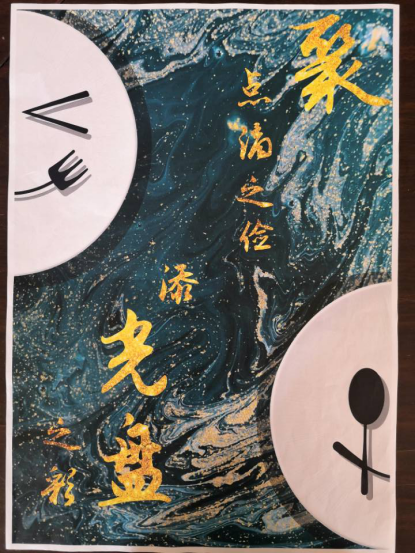 聚
点滴之俭
添
光盘
之彩